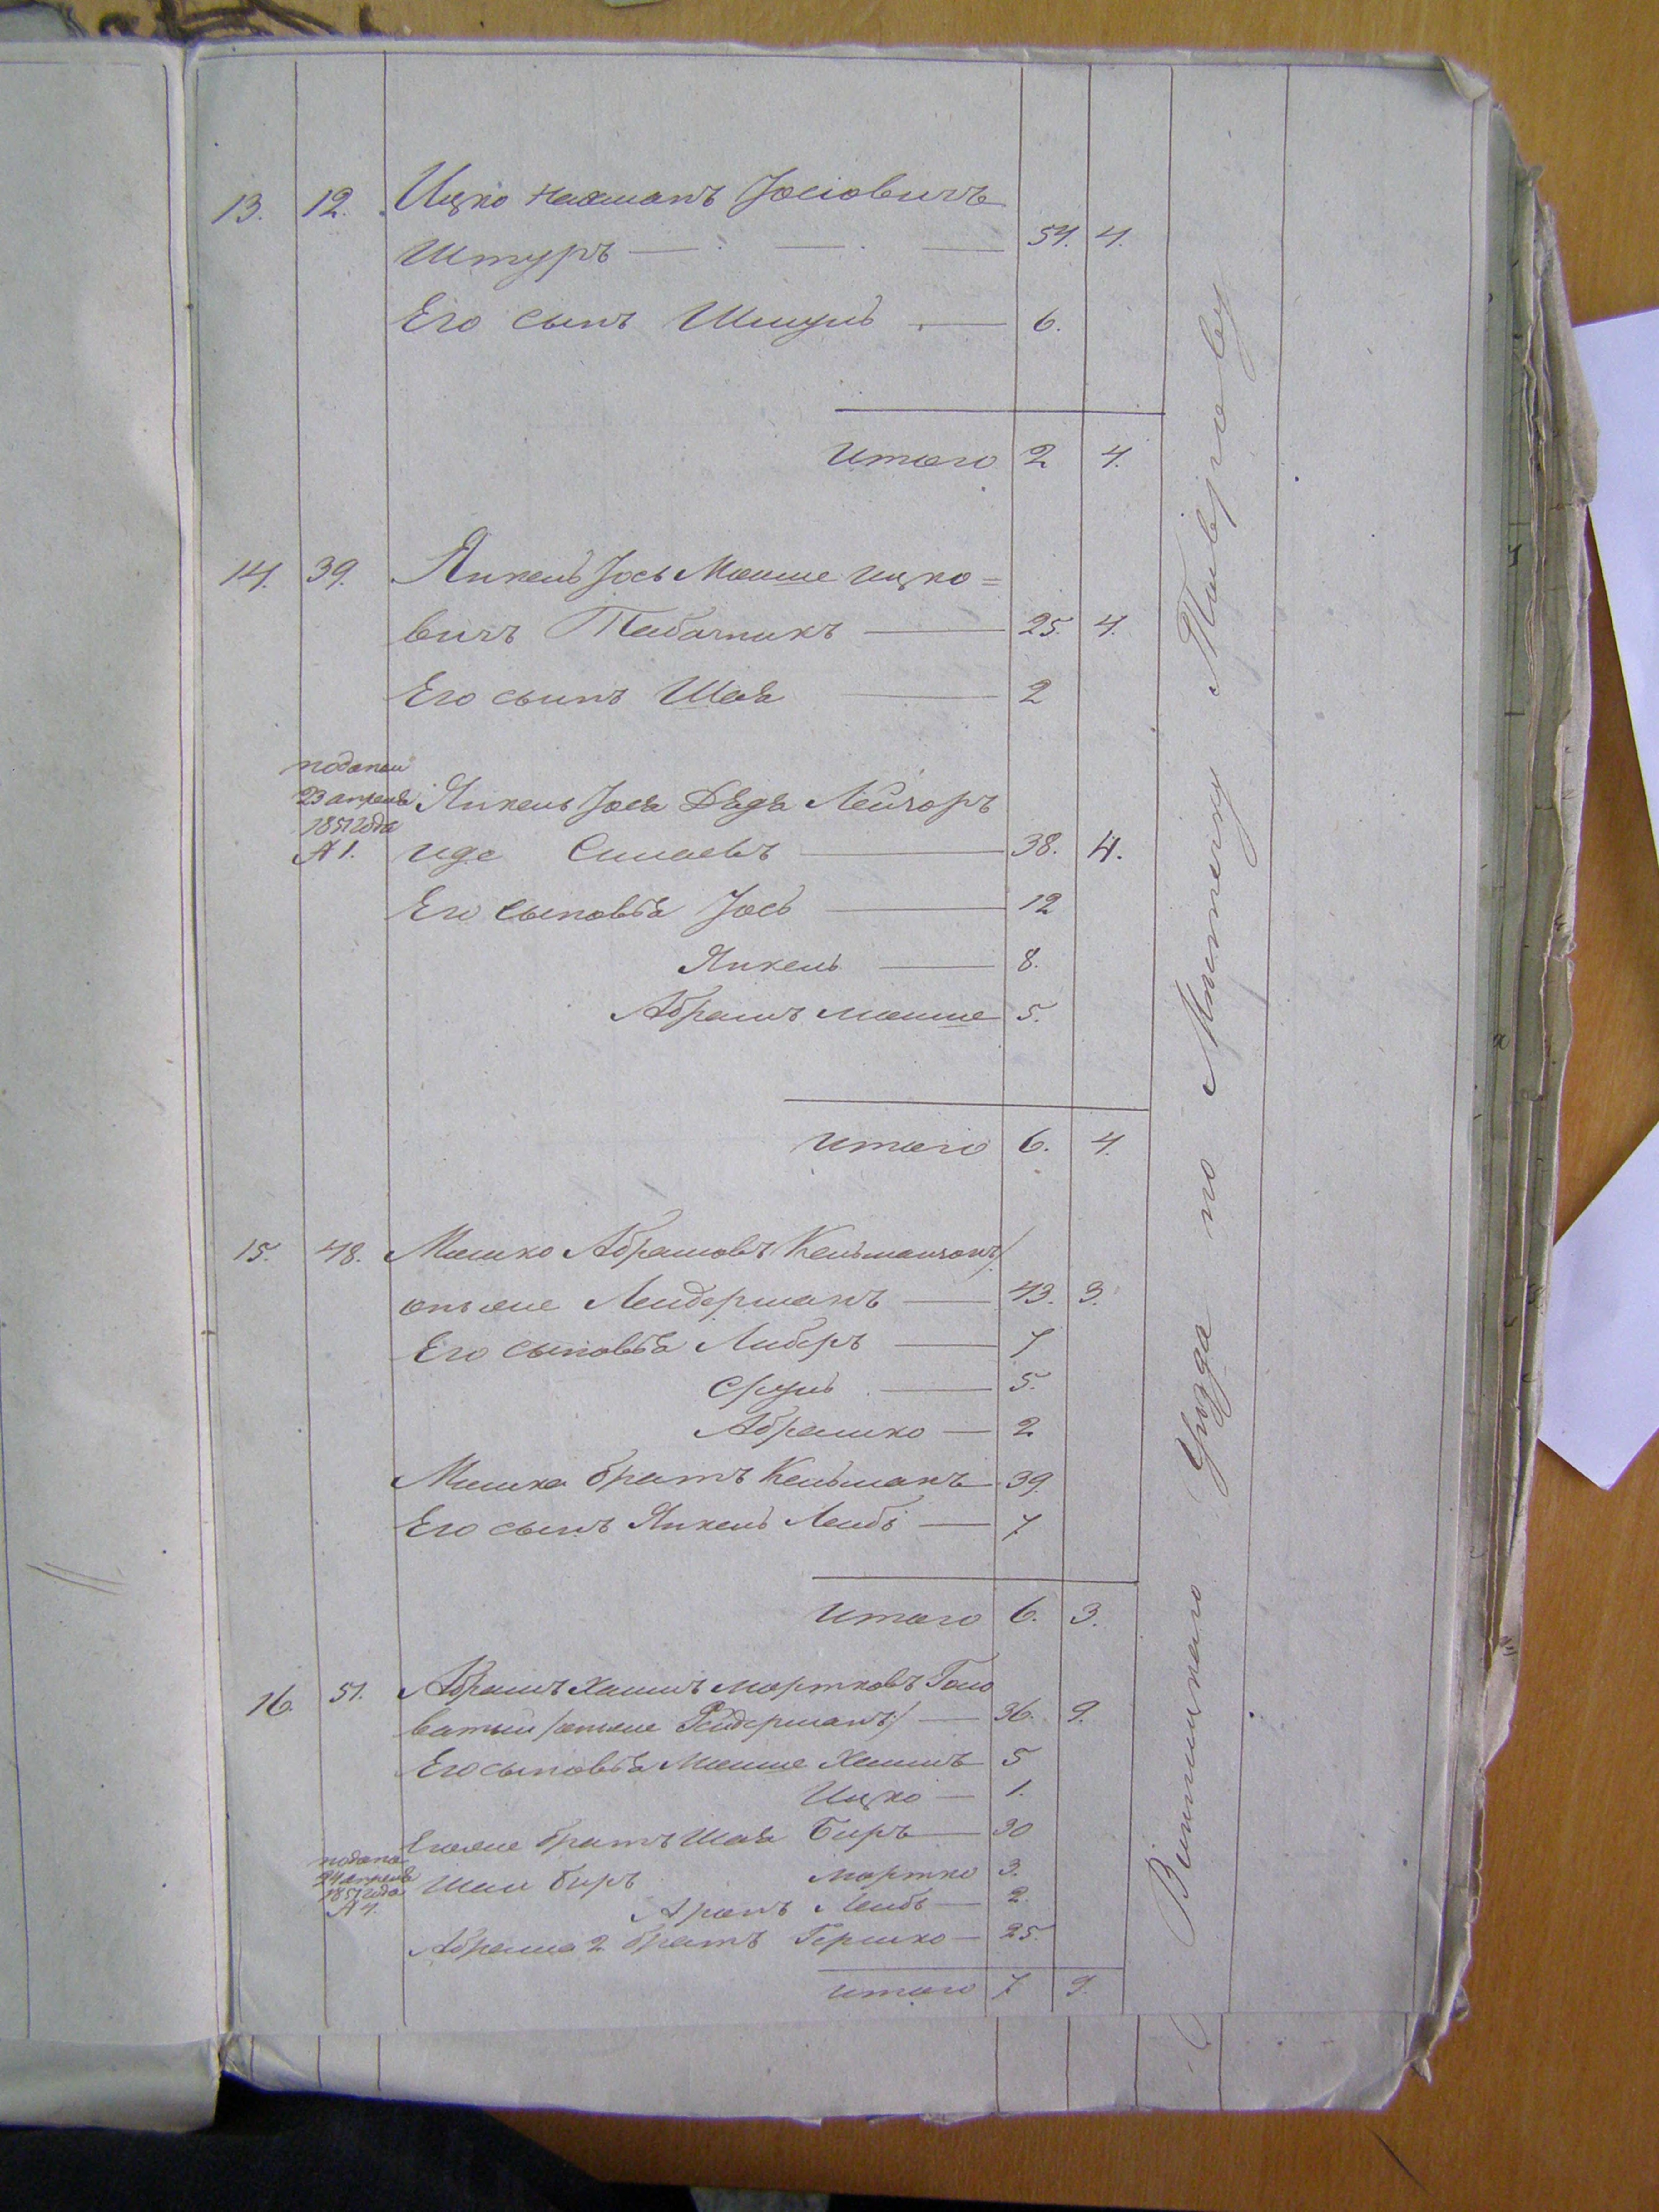 13. 12. Ицко Нахманъ Іосіовичъ
Штуръ — 54. 4.
Его сынъ Шмуль — 6.
Итого 2 4.
14. 39. Янкель Іось Мошше Ицко=
вичъ Табачникъ — 25. 4.
Его сынъ Шая — 2
23 апреля
1851 года
№ 1.
Янкель Іося Дядя Лейзоръ
— 38. 4.
Его сыновья Іось — 12
Янкель — 8.
Абрамъ Мошше 5.
Итого 6. 4.
15. 48. Мошко Абрамовъ Кельман
онъ же Лендерманъ — 43. 3.
Его сыновья Либеръ — 7
Сруль — 5.
Абрамко — 2
Мошка братъ Кельманъ — 39.
Его сынъ Янкель Лейбъ — 7
Итого 6. 3.
16. 51. Абрамъ Хаимъ Мортковъ Голо
ватый /онъ же Рейдерманъ/ — 36. 9.
Его сыновья Мошше Хаимъ — 5
Ицко — 1.
Его же братъ Шая Беръ — 30
24 апреля
1851 года
№ 4.
Шаи Беръ Мортко 3.
Аронъ Лейбъ — 2.
Абрама 2 братъ Гершко — 25.
Итого 7 9.
Винницкаго Уѣзда по Мѣстечку Тивріову